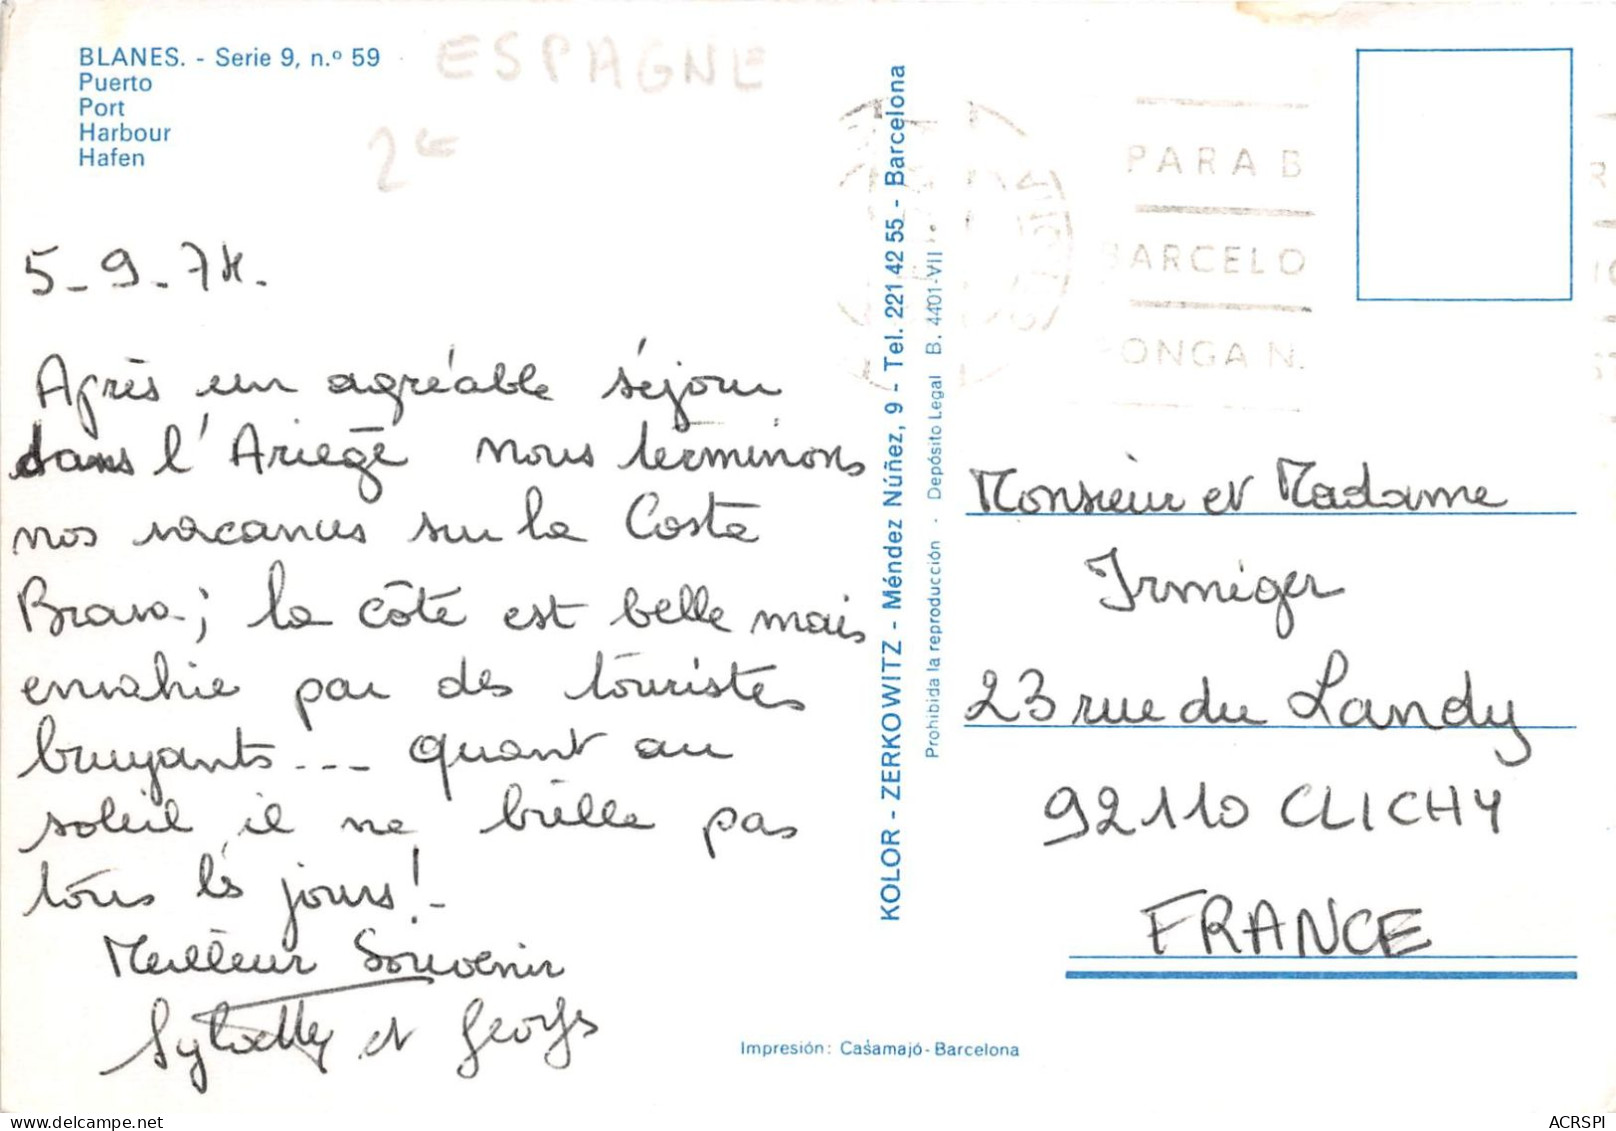 BLANES. - Serie 9, n.º 59
Puerto
Port
Harbour
Hafen
ESPAGNE
2€
5-9-74.
Après un agréable séjour
dans l'Ariège nous terminons
nos vacances sur la Costa
Brava; la côte est belle mais
envahie par des touristes
bruyants... quant au
soleil il ne brille pas
tous les jours!
Meilleur Souvenir
et Georges
KOLOR - ZERKOWITZ - Méndez Núñez, 9 - Tel. 221 42 55 - Barcelona
Prohibida la reproducción - Depósito Legal B. 4401-VII
PARA B
BARCELO
PONGA N.
Monsieur et Madame
Irmiger
23 rue du Landy
92110 CLICHY
FRANCE
Impresión: Casamajó-Barcelona
ACRSPI